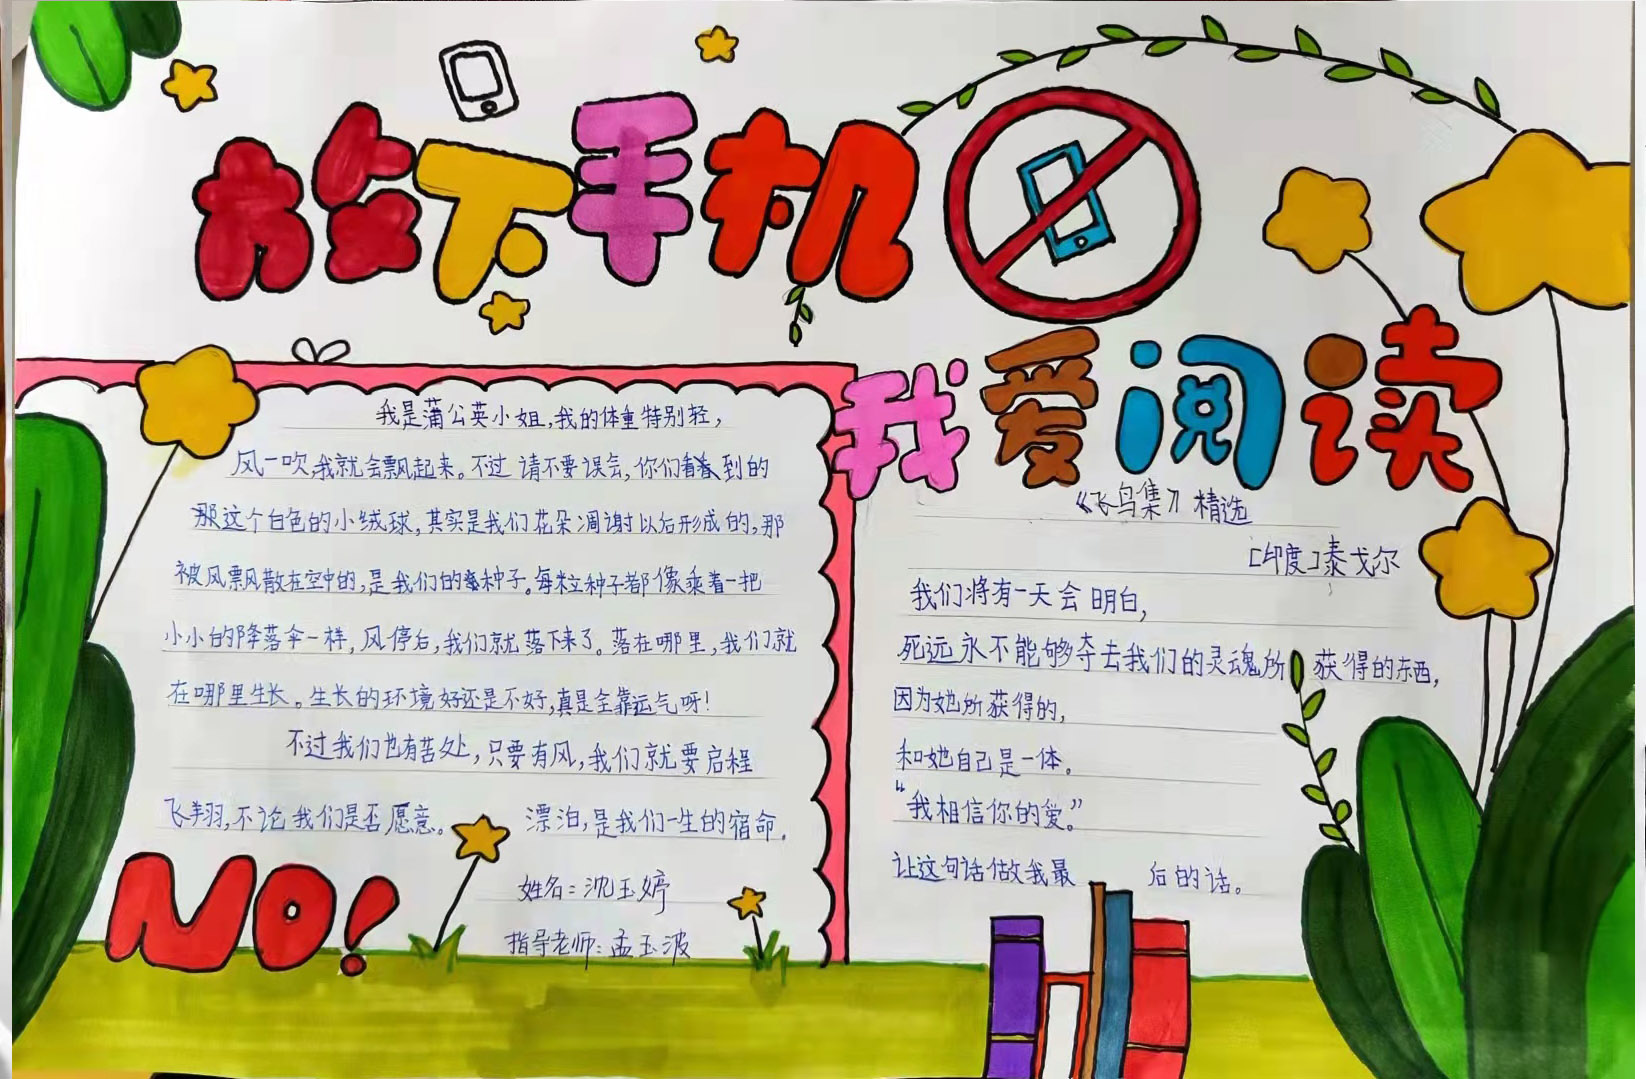 放下手机
我爱阅读
我是蒲公英小姐,我的体重特别轻,
风一吹我就会飘起来。不过 请不要误会,你们看到的
那这个白色的小绒球,其实是我们花朵凋谢以后形成的,那
被风飘风散在空中的,是我们的种子。每粒种子都像乘着一把
小小的降落伞一样,风停后,我们就落下来了。落在哪里,我们就
在哪里生长。生长的环境好还是不好,真是全靠运气呀!
不过我们也有苦处,只要有风,我们就要启程
飞翔,不论我们是否愿意。 漂泊,是我们一生的宿命。
姓名:沈玉婷
指导老师:孟玉波
NO!
《飞鸟集》精选
[印度]泰戈尔
我们将有一天会明白,
死远永不能够夺去我们的灵魂所获得的东西,
因为她所获得的,
和她自己是一体。
“我相信你的爱。”
让这句话做我最 后的话。